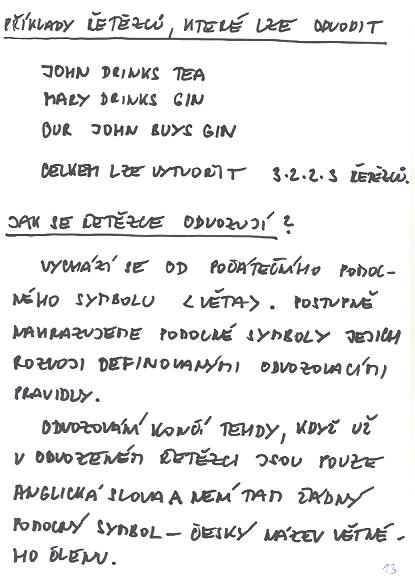 PŘÍKLADY ŘETĚZCŮ, KTERÉ LZE ODVODIT
JOHN DRINKS TEA
MARY DRINKS GIN
OUR JOHN BUYS GIN
CELKEM LZE VYTVOŘIT 3.2.2.3 ŘETĚZCŮ.
JAK SE ŘETĚZCE ODVOZUJÍ?
VYCHÁZÍ SE OD POČÁTEČNÍHO POMOC-
NÉHO SYMBOLU <VĚTA>. POSTUPNĚ
NAHRAZUJEME POMOCNÉ SYMBOLY JEJICH
ROZVOJI DEFINOVANÝMI ODVOZOVACÍMI
PRAVIDLY.
ODVOZOVÁNÍ KONČÍ TEHDY, KDYŽ UŽ
V ODVOZENÉM ŘETĚZCI JSOU POUZE
ANGLICKÁ SLOVA A NENÍ TAM ŽÁDNÝ
POMOCNÝ SYMBOL – ČESKÝ NÁZEV VĚTNÉ-
HO ČLENU.
13